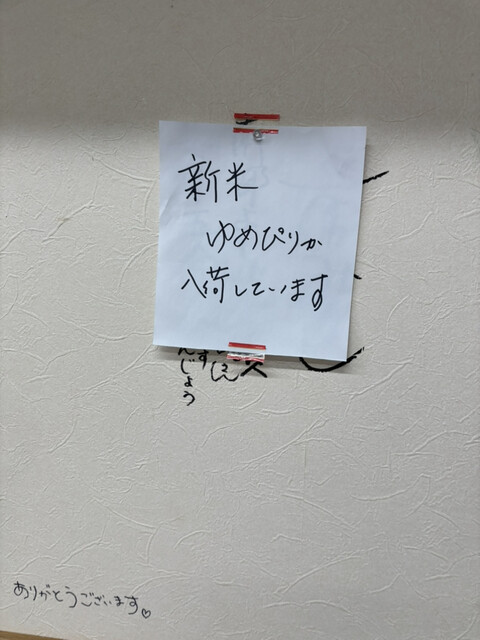 新米
ゆめぴりか
入荷しています
んじょう
ありがとうございます♡